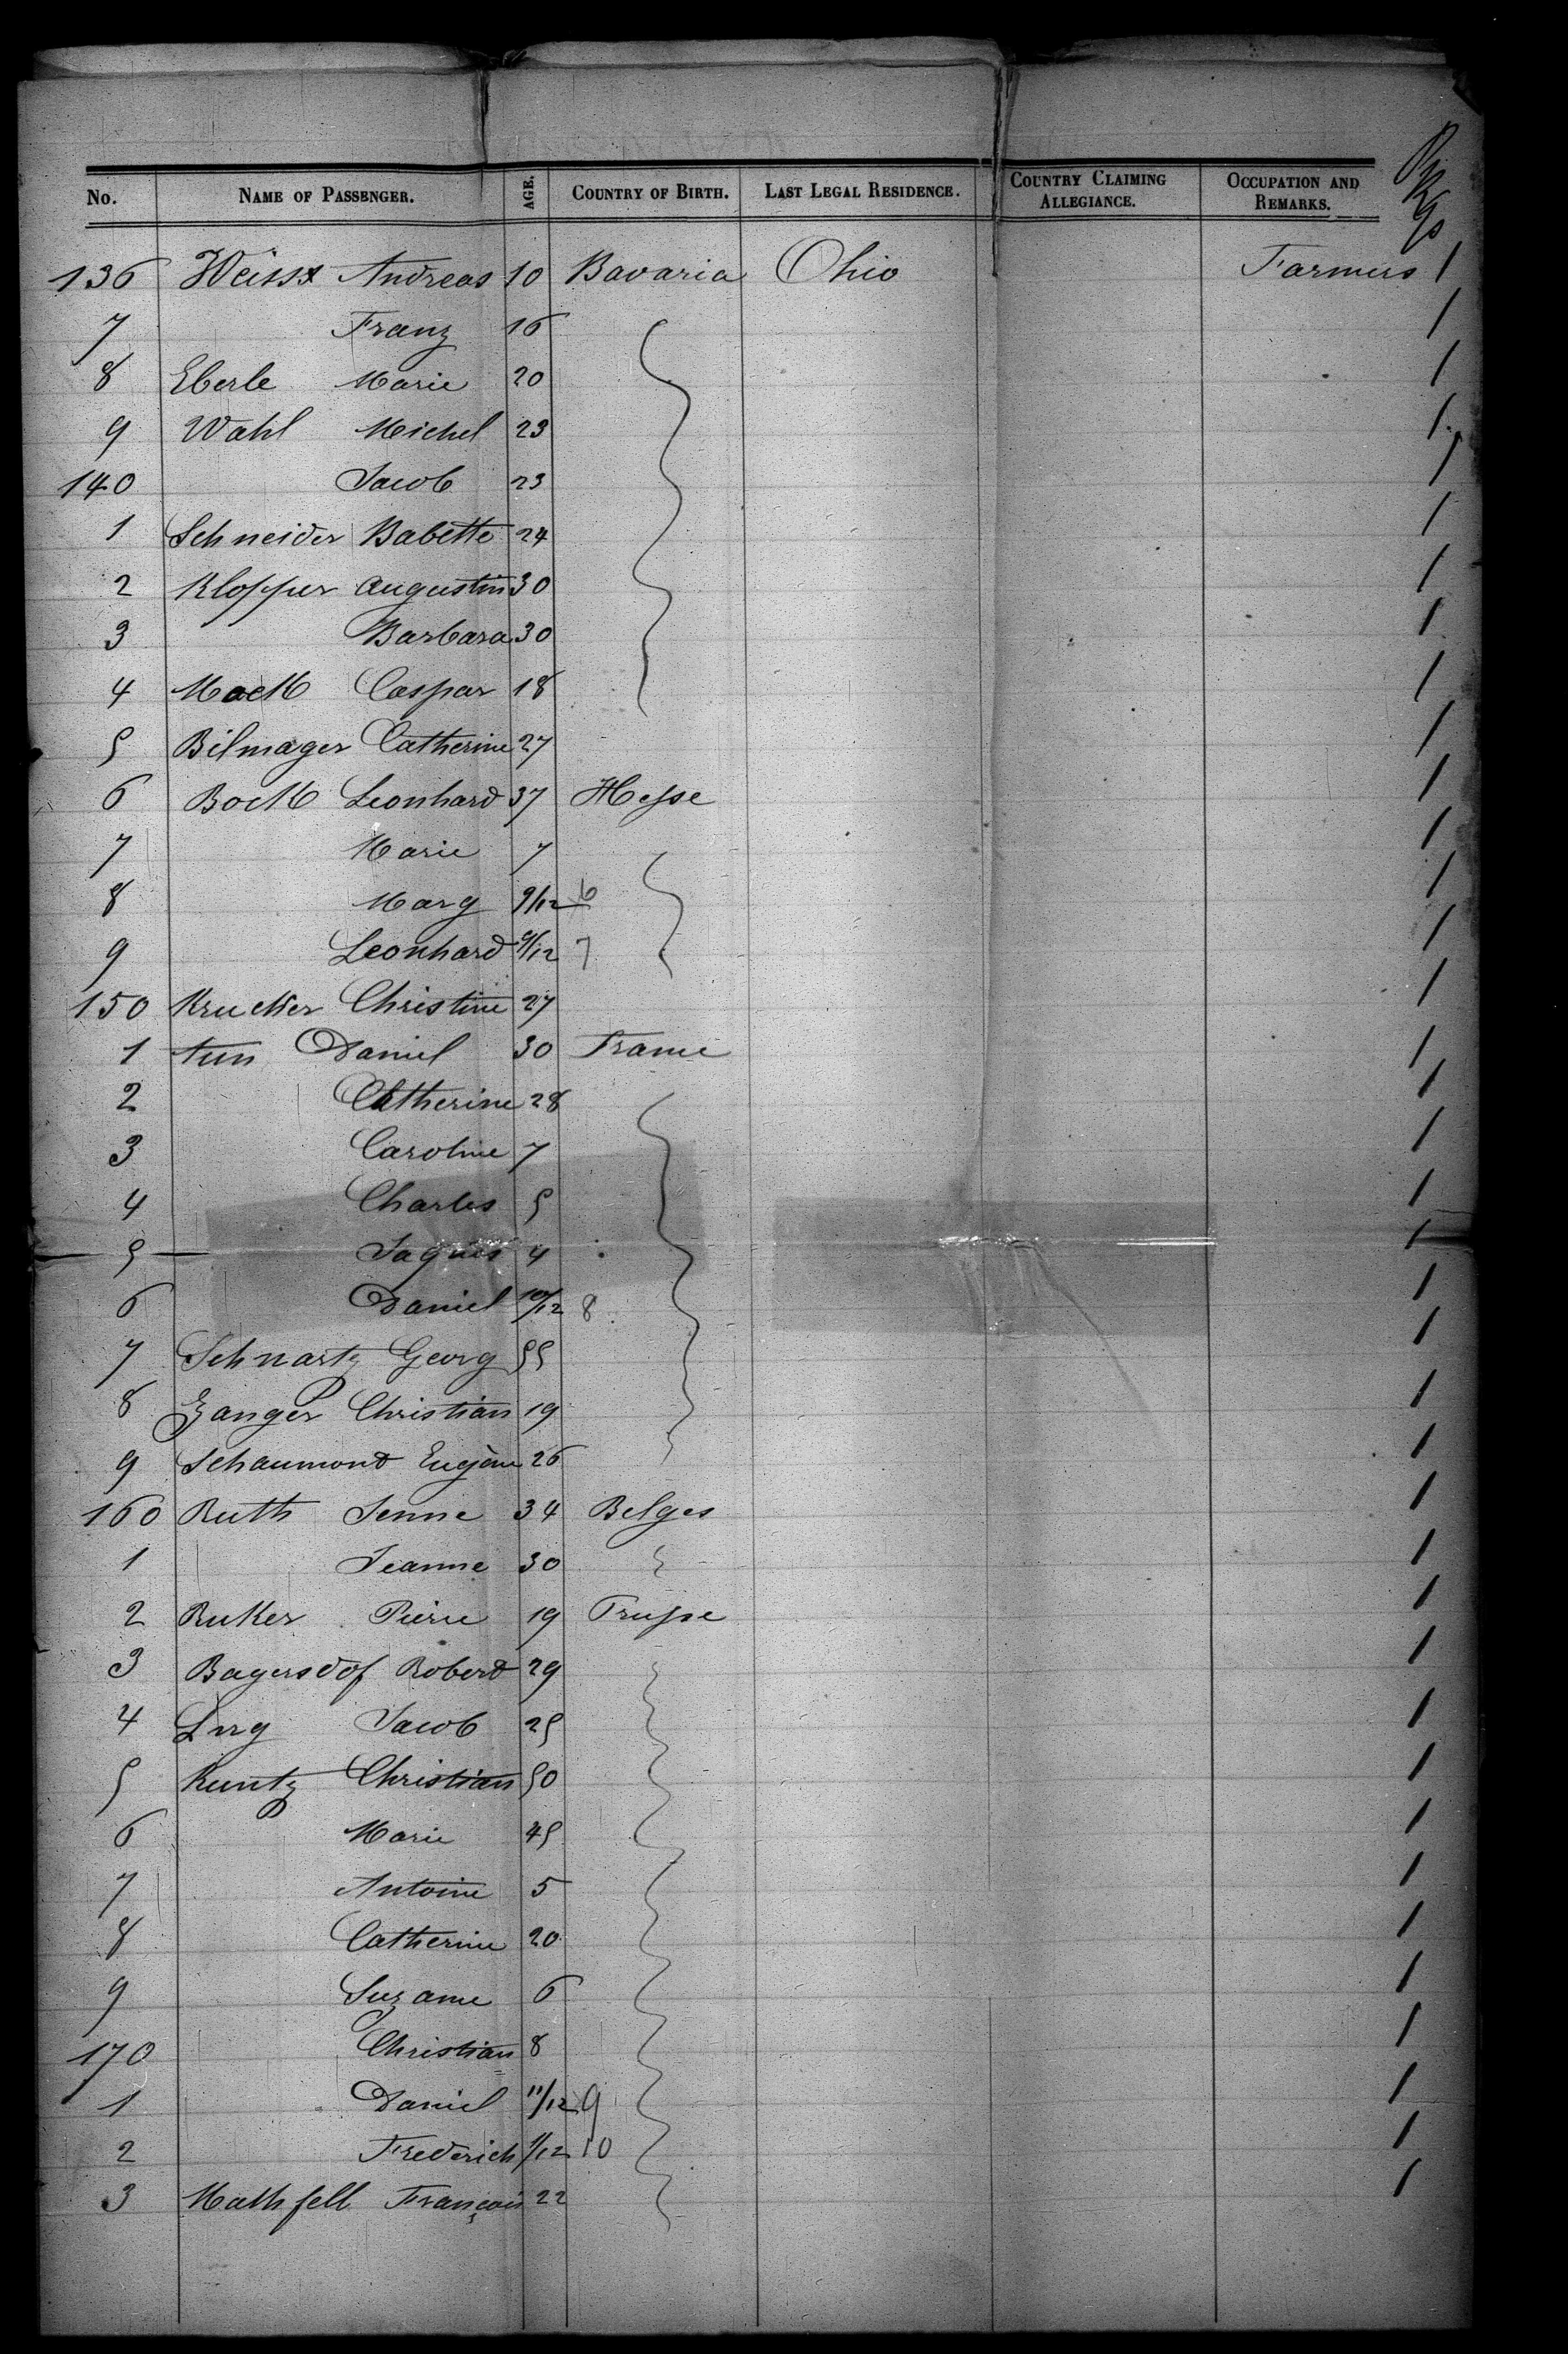 No. NAME OF PASSENGER. AGE. COUNTRY OF BIRTH. LAST LEGAL RESIDENCE. COUNTRY CLAIMING ALLEGIANCE. OCCUPATION AND REMARKS. Pkgs
136 Weiss Andreas 10 Bavaria Ohio Farmers 1
7 Franz 16 1
8 Eberle Marie 20 1
9 Wahl Michel 23 1
140 Jacob 23 1
1 Schneider Babette 24 1
2 Klopper Augustin 30 1
3 Barbara 30 1
4 Mack Caspar 18 1
5 Bilmager Catherine 27 1
6 Bock Leonhard 37 Hesse 1
7 Marie 7 1
8 Marg 9/12 6 1
9 Leonhard 9/12 7 1
150 Krucker Christine 27 1
1 Daniel 30 France 1
2 Catherine 28 1
3 Caroline 7 1
4 Charles 5 1
5 Jaques 4 1
6 Daniel 10/12 8 1
7 Schwartz Georg 55 1
8 Zanger Christian 19 1
9 Schaumont Eugène 26 1
160 Ruth Jenne 34 Belges 1
1 Jeanne 30 1
2 Ruker Pierre 19 Prusse 1
3 Bagersdof Robert 29 1
4 Jacob 25 1
5 Kuntz Christian 50 1
6 Marie 45 1
7 Antoine 5 1
8 Catherine 20 1
9 Suzanne 6 1
170 Christian 8 1
1 Daniel 11/12 9 1
2 Frederich 1/12 10 1
3 Mathfell François 22 1